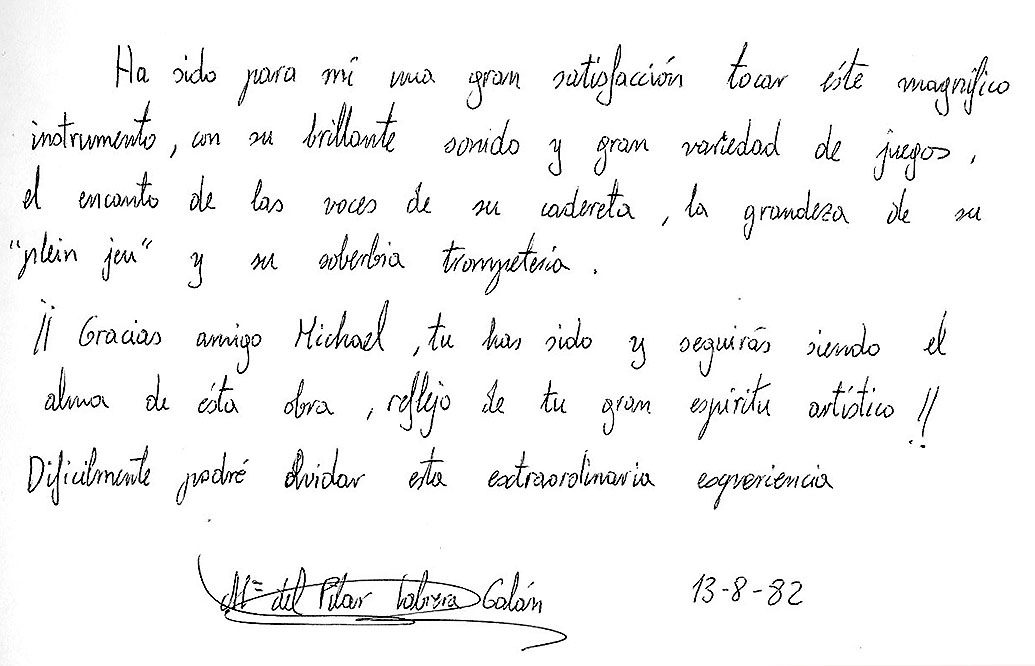 Ha sido para mí una gran satisfacción tocar éste magnífico
instrumento, con su brillante sonido y gran variedad de juegos,
el encanto de las voces de su cadereta, la grandeza de su
"plein jeu" y su soberbia trompetería.
¡¡ Gracias amigo Michael, tu has sido y seguirás siendo el
alma de ésta obra, reflejo de tu gran espíritu artístico !!
Dificilmente podré olvidar esta extraordinaria experiencia
Mª del Pilar Cabrera Galán 13-8-82